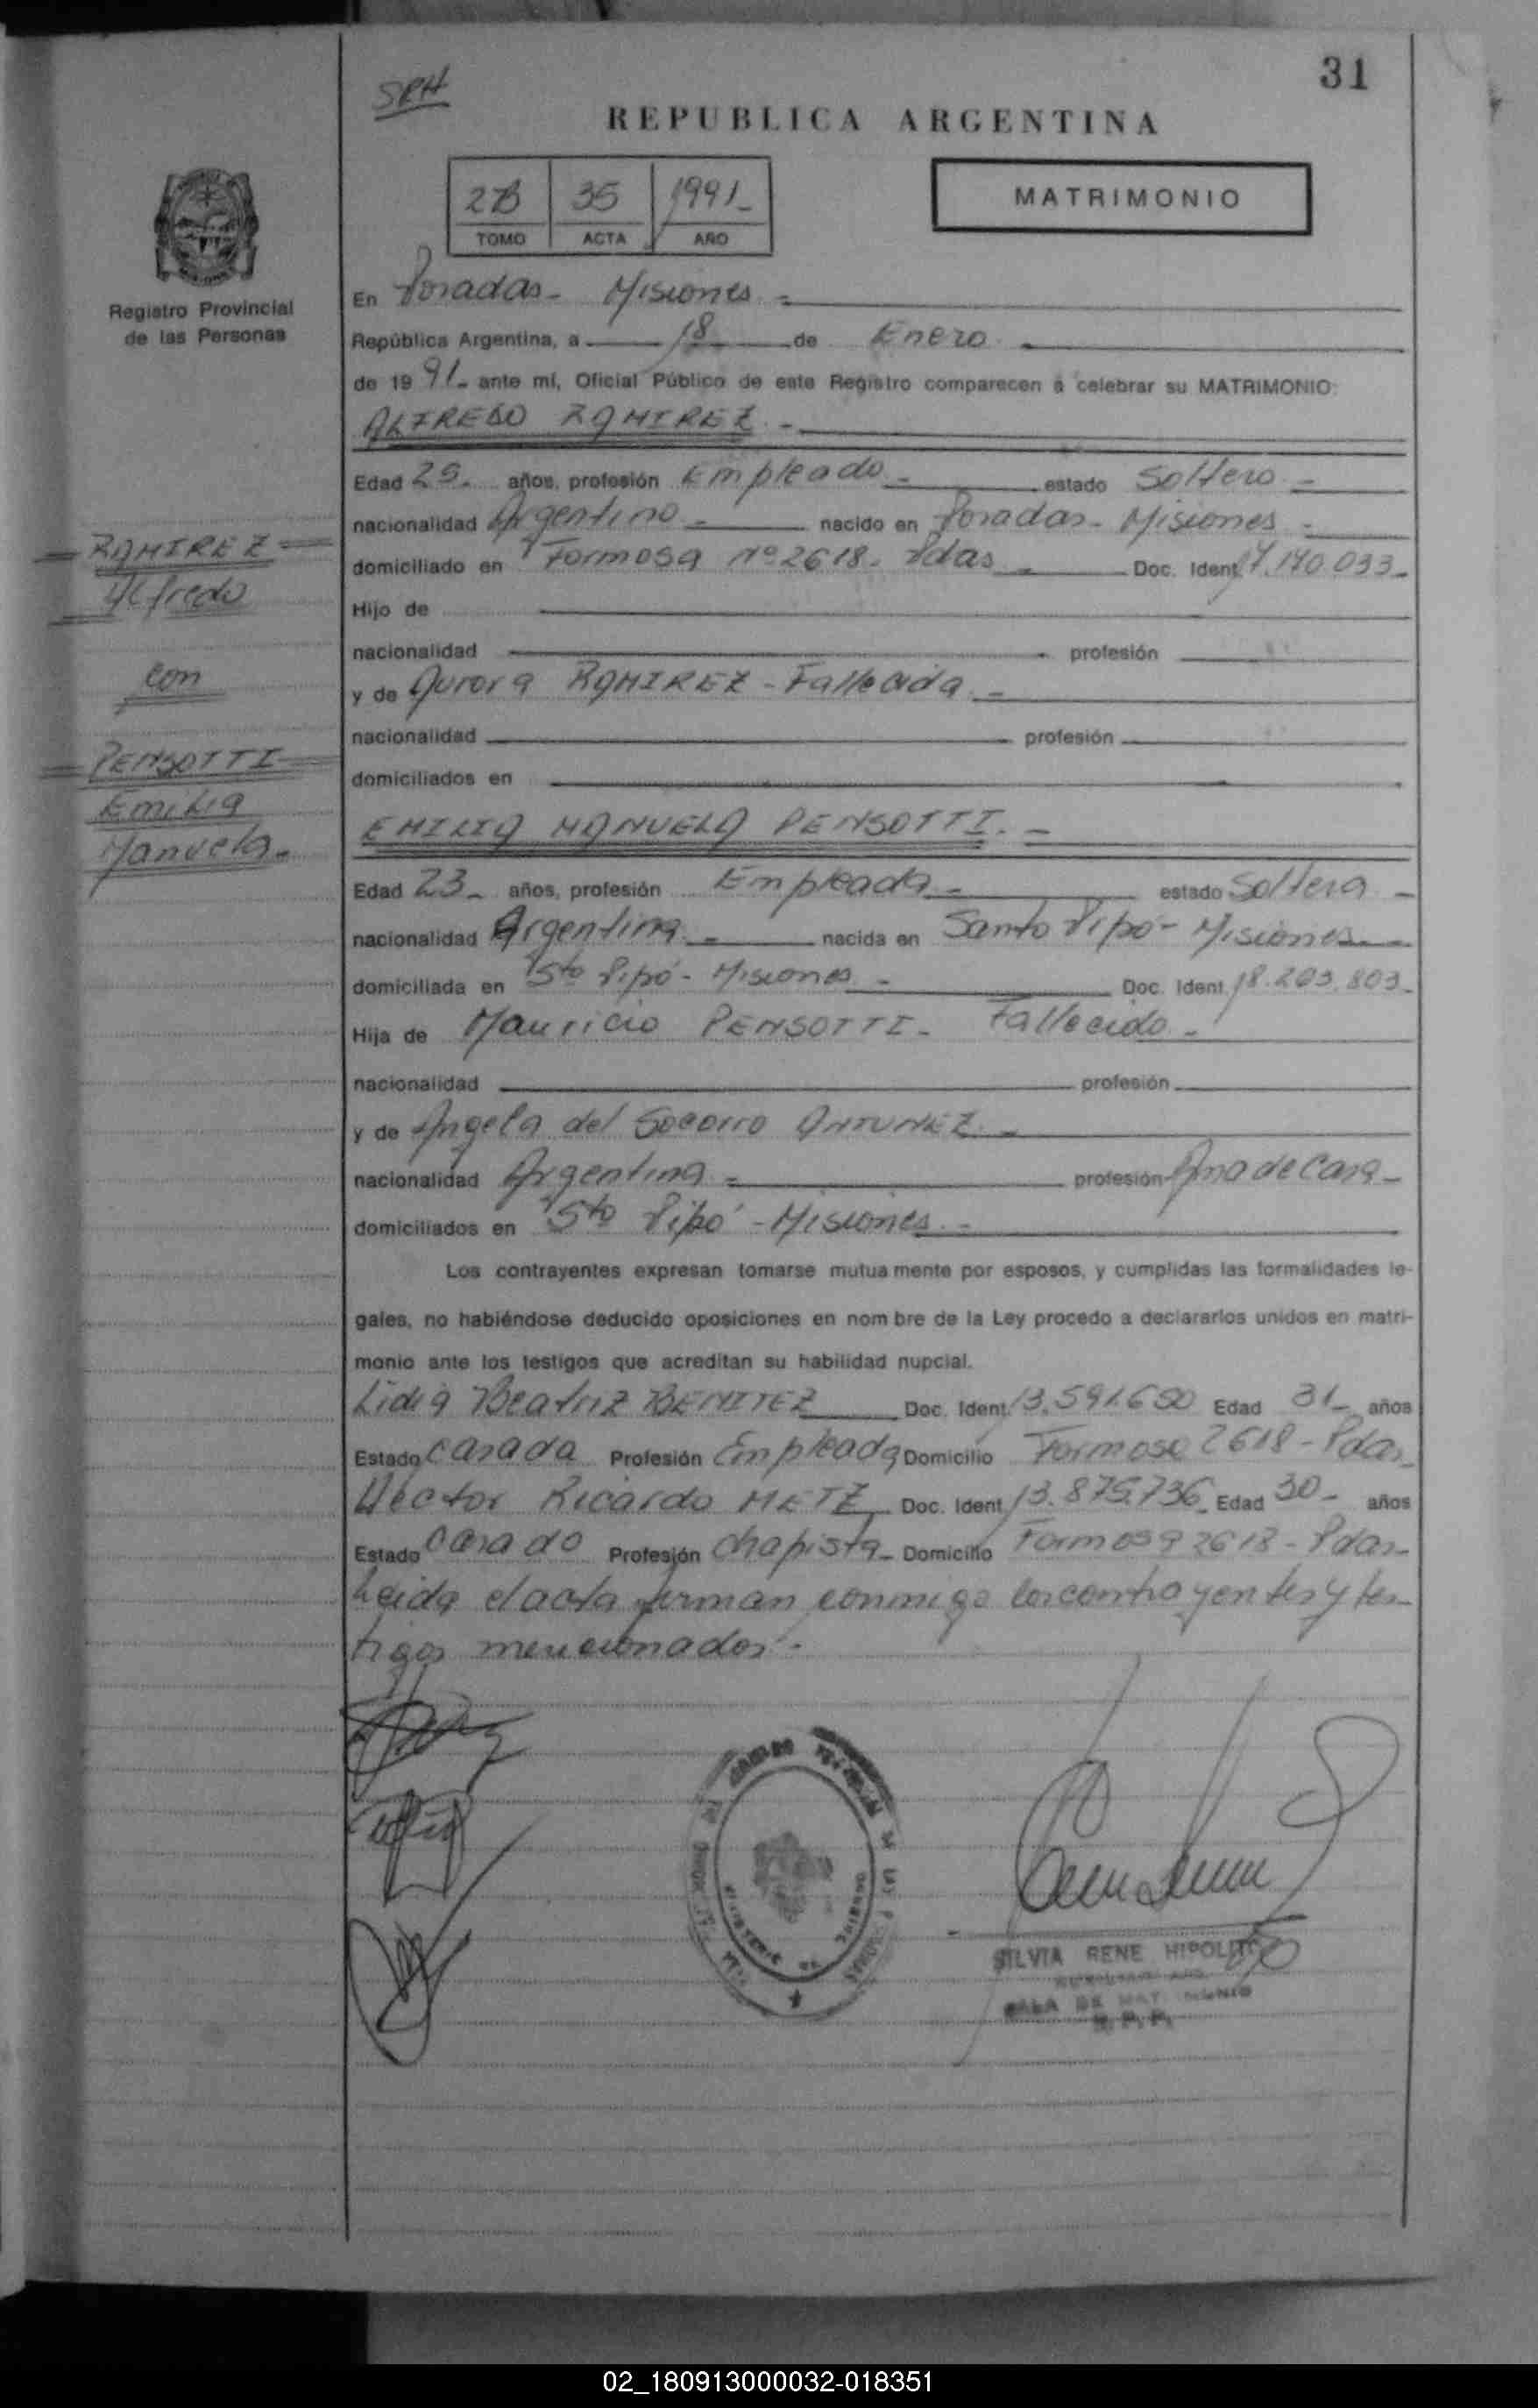 31
SRH
REPUBLICA ARGENTINA
2B 35 1991_
TOMO ACTA AÑO
MATRIMONIO
Registro Provincial
de las Personas
En Posadas - Misiones . -
República Argentina, a 18 de Enero . -
de 19 91 - ante mí, Oficial Público de este Registro comparecen a celebrar su MATRIMONIO:
ALFREDO RAMIREZ . -
Edad años, profesión Empleado - estado Soltero -
nacionalidad Argentino - nacido en Posadas - Misiones . -
domiciliado en Formosa Nº 2618 - Pdas - Doc. Ident. 17.170.033 -
Hijo de
nacionalidad profesión
y de Aurora RAMIREZ - Fallecida . -
nacionalidad profesión
domiciliados en
RAMIREZ
Alfredo
con
PENSOTTI
Emilia
Manuela -
EMILIA MANUELA PENSOTTI . -
Edad 23 - años, profesión Empleada - estado Soltera -
nacionalidad Argentina - nacida en Santo Pipó - Misiones -
domiciliada en Sto Pipó - Misiones - Doc. Ident. 18.203.803 -
Hija de Mauricio PENSOTTI - Fallecido -
nacionalidad profesión
y de Angela del Socorro ANTUNEZ . -
nacionalidad Argentina - profesión Ama de Casa -
domiciliados en Sto Pipó - Misiones . -
Los contrayentes expresan tomarse mutua mente por esposos, y cumplidas las formalidades le-
gales, no habiéndose deducido oposiciones en nom bre de la Ley procedo a declararlos unidos en matri-
monio ante los testigos que acreditan su habilidad nupcial.
Lidia Beatriz BENITEZ Doc. Ident. 13.591.650 Edad 31 - años
Estado Casada Profesión Empleada Domicilio Formosa 2618 - Pdas -
Hector Ricardo METZ Doc. Ident. 13.875.736 - Edad 30 - años
Estado Casado Profesión Chapista - Domicilio Formosa 2618 - Pdas -
Leida el acta firman conmigo los contrayentes y tes-
tigos mencionados . -
SILVIA RENE HIPOLITO
SALA DE MATRIMONIO
R. P. P.
02_180913000032-018351